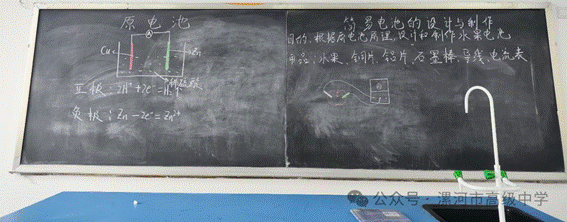 原电池
A
Cu
Zn
稀硫酸
正极：2H⁺+2e⁻=H₂↑
负极：Zn-2e⁻=Zn²⁺
简易电池的设计与制作
目的：根据原电池原理，设计和制作水果电池
用品：水果、铜片、铝片、石墨棒、导线、电流表
公众号·漯河市高级中学